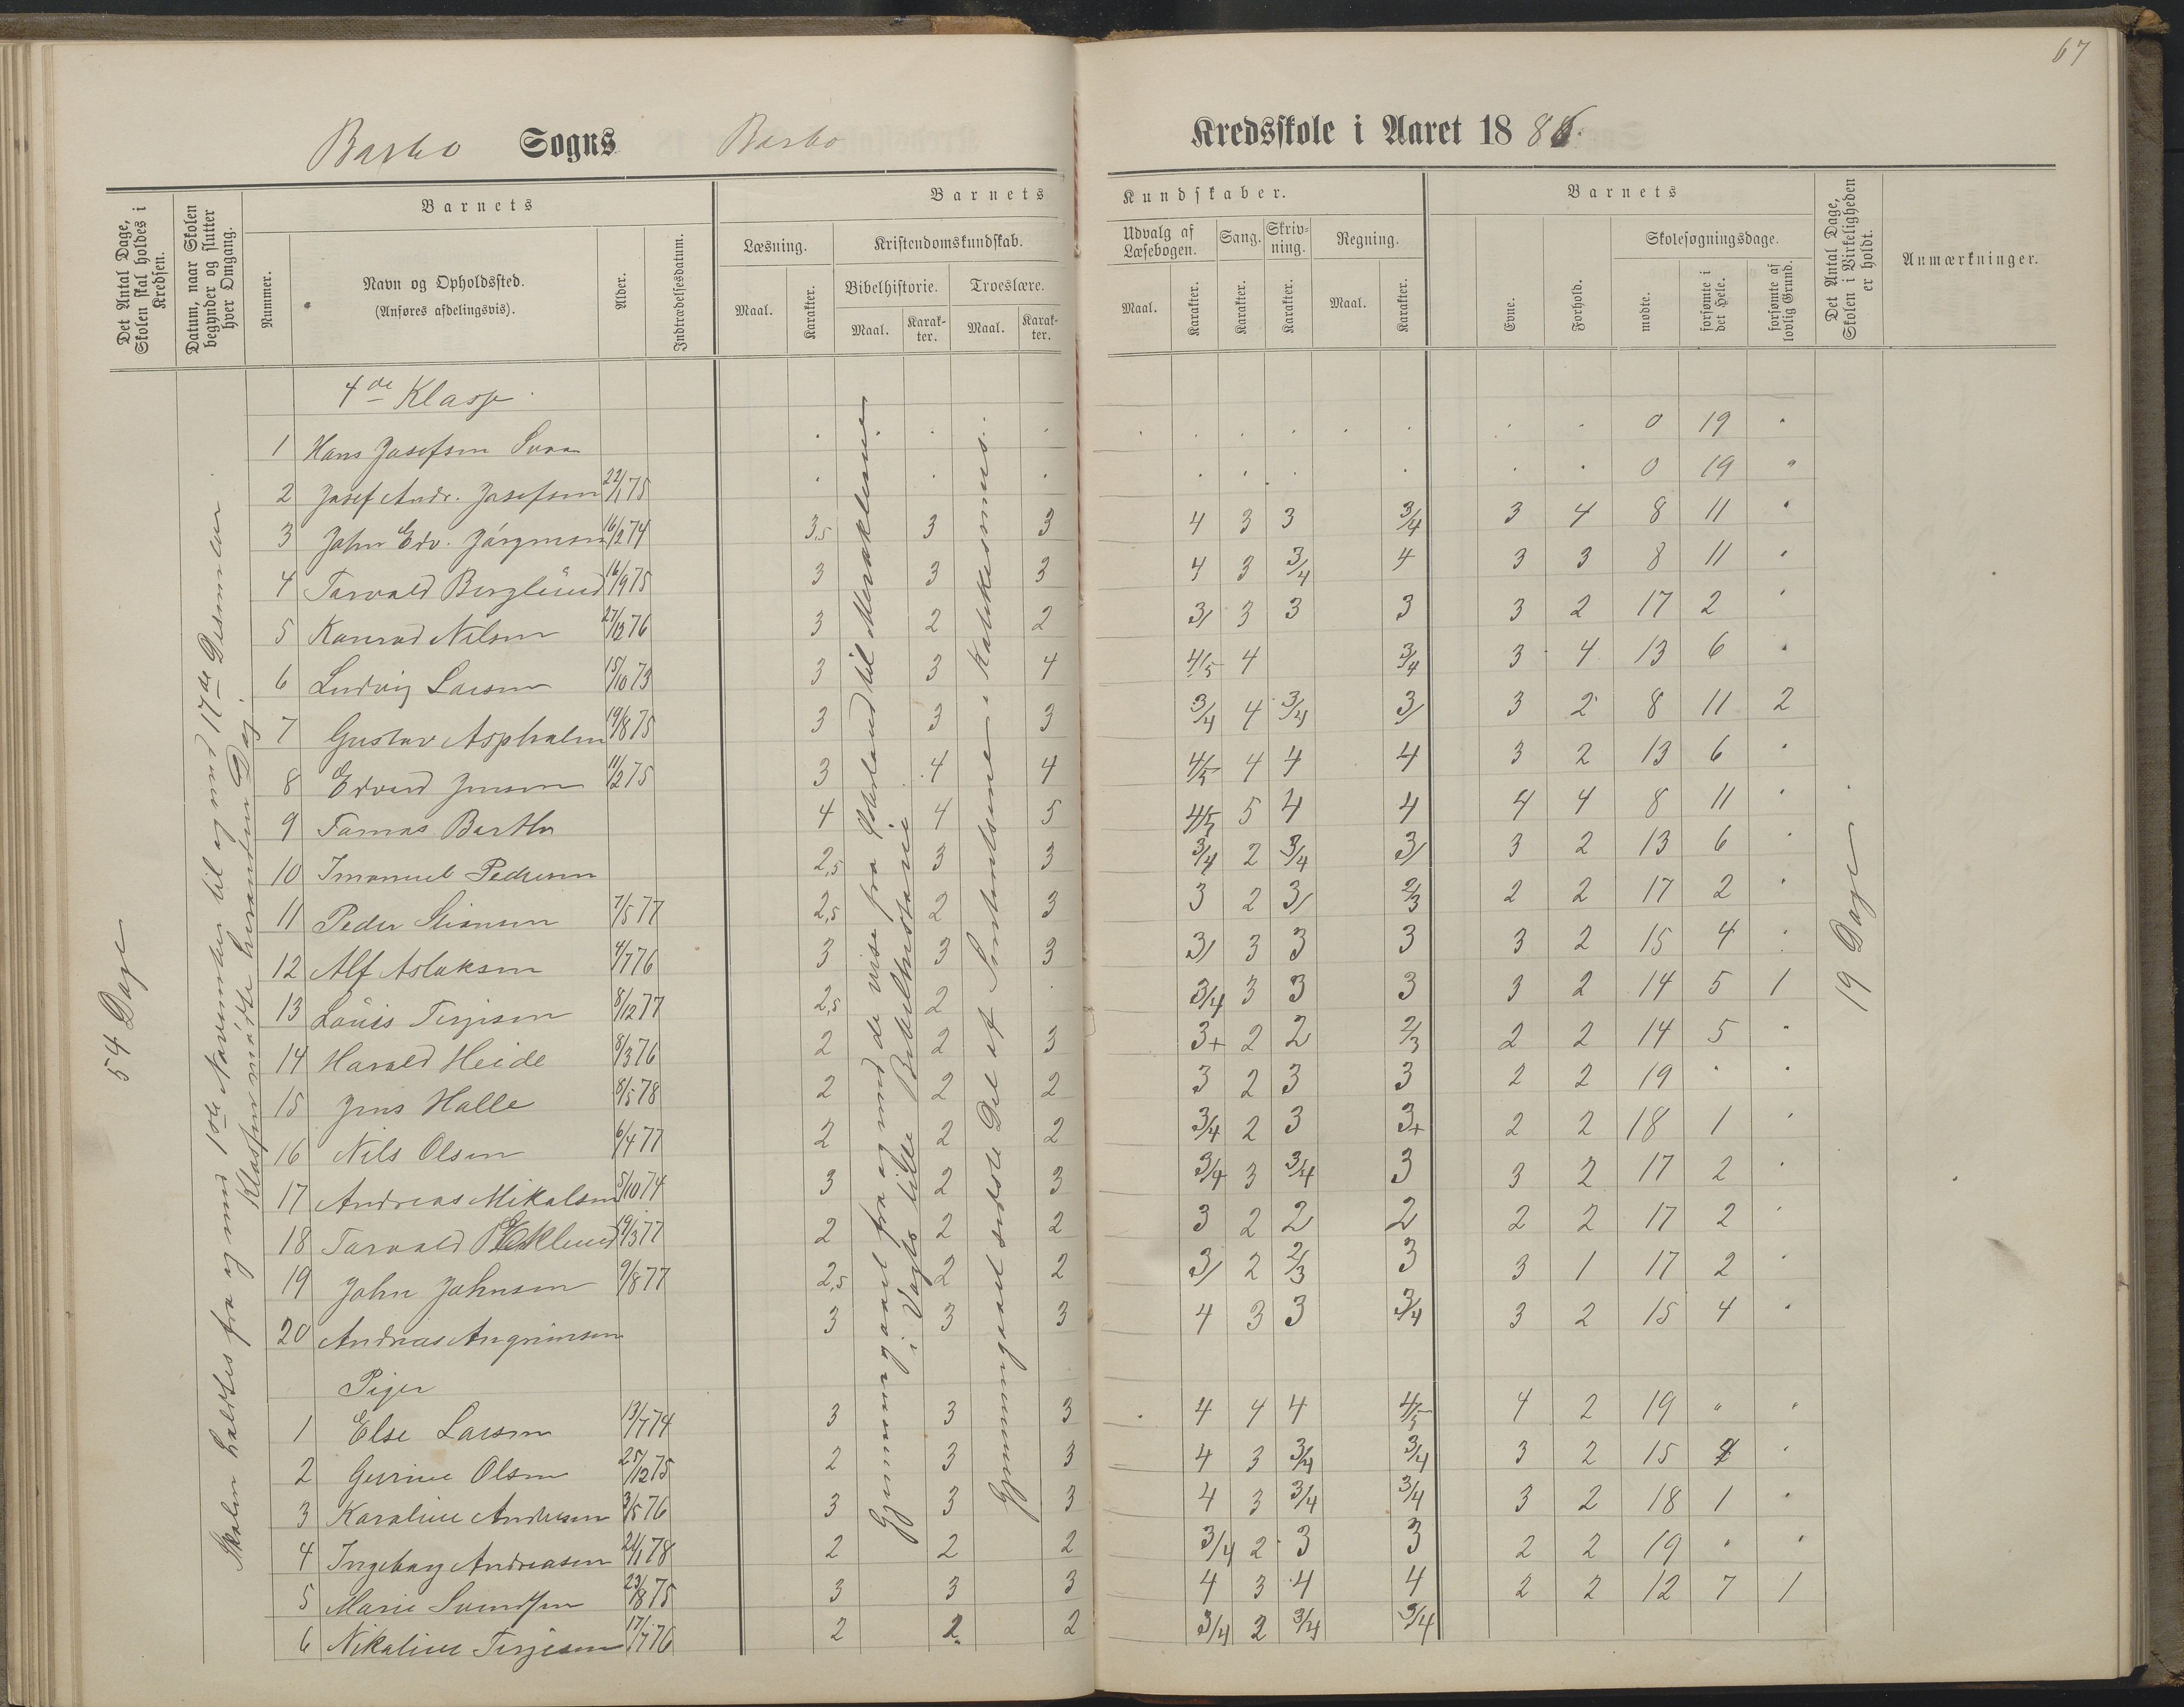 67
Barbo Sogns Barbo Kredsskole i Aaret 1886.
Det Antal Dage, Skolen skal holdes i Kredsen.
Datum, naar Skolen begynder og slutter hver Omgang.
Barnets
Nummer.
Navn og Opholdssted.
(Anføres afdelingsvis).
Alder.
Indtrædelsesdatum.
Barnets Kundskaber.
Læsning.
Maal.
Karakter.
Kristendomskundskab.
Bibelhistorie.
Maal.
Karakter.
Troeslære.
Maal.
Karakter.
Udvalg af Læsebogen.
Maal.
Karakter.
Sang.
Karakter.
Skrivning.
Karakter.
Regning.
Maal.
Karakter.
Barnets
Evne.
Forhold.
Skolesøgningsdage.
mødte.
forsømte i det Hele.
forsømte af lovlig Grund.
Det Antal Dage, Skolen i Virkeligheden er holdt.
Anmærkninger.
54 Dage
Skolen holdtes fra og med 1ste November til og med 17de Desember.
Klassen mødte hveranden Dag.
Gjennemgaaet fra og med de vise fra Østerland til Miraklerne i Vogts lille Bibelhistorie
Gjennemgaaet sidste Del af Sententserne i Katekismus.
19 Dage
4de Klasse
1 Hans Josefsen . . . . . . . . . . . . 0 19 "
2 Josef Andr. Josefsen 22/1 75 . . . . . . . . . 0 19 "
3 John Edv. Jörgensen 16/2 74 3,5 3 3 4 3 3 3/4 3 4 8 11 "
4 Torvald Berglund 16/9 75 3 3 3 4 3 3/4 4 3 3 8 11 "
5 Konrad Nilsen 27/12 76 3 2 2 3/ 3 3 3 3 2 17 2 "
6 Ludvig Larsen 15/10 73 3 3 4 4/5 4 3/4 3 4 13 6 "
7 Gustav Aspholm 19/8 75 3 3 3 3/4 4 3/4 3/ 3 2 8 11 2
8 Edvard Jensen 11/2 75 3 4 4 4/5 4 4 4 3 2 13 6 "
9 Tomas Barth 4 4 5 4/5 5 4 4 4 4 8 11 "
10 Imanuel Pedersen 2,5 3 3 3/4 2 3/4 3/ 3 2 13 6 "
11 Peder Stiansen 7/5 77 2,5 2 3 3 2 3/ 2/3 2 2 17 2 "
12 Alf Aslaksen 4/7 76 3 3 3 3/ 3 3 3 3 2 15 4 "
13 Louis Terjesen 8/12 77 2,5 2 . 3/4 3 3 3 3 2 14 5 1
14 Harald Heide 8/3 76 2 2 3 3+ 2 2 2/3 2 2 14 5 "
15 Jens Halle 8/5 78 2 2 2 3 2 3 3 2 2 19 " "
16 Nils Olsen 6/4 77 2 2 2 3/4 2 3 3+ 2 2 18 1 "
17 Andreas Mikalsen 5/10 74 3 2 3 3/4 3 3/4 3 3 2 17 2 "
18 Torvald Eklund 19/3 77 2 2 2 3 2 2 2 2 2 17 2 "
19 John Johnsen 9/8 77 2,5 2 2 3/ 2 2/3 3 3 1 17 2 "
20 Andreas Angrimsen 3 3 3 4 3 3 3/4 3 2 15 4 "
Piger
1 Else Larsen 13/7 74 3 3 3 4 4 4 4/5 4 2 19 " "
2 Gurine Olsen 25/12 75 2 3 3 4 3 3/4 3/4 3 2 15 4 "
3 Karoline Andersen 3/5 76 3 3 3 4 3 3/4 3/4 3 2 18 1 "
4 Ingeborg Andreasen 24/1 78 2 2 2 3/4 2 3 3 2 2 19 " "
5 Marie Svendsen 23/8 75 3 3 3 4 3 4 4 2 2 12 7 1
6 Nikoline Terjesen 17/7 76 2 2 2 3/4 2 3/4 3/4